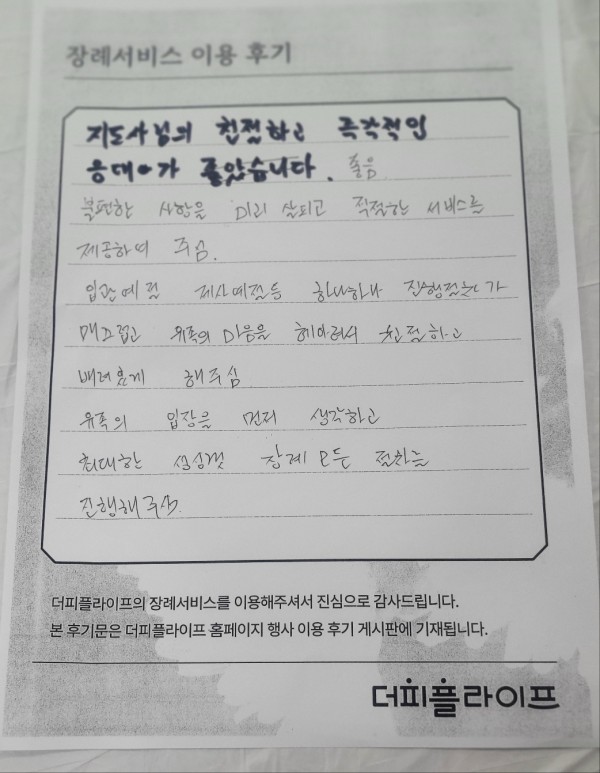 장례서비스 이용 후기
지도사님의 친절하고 즉각적인
응대가 좋았습니다. 좋음
불편한 사항을 미리 살피고 적절한 서비스를
제공하여 주심.
입관예절 제사예절등 하나하나 진행절차가
매끄럽고 유족의 마음을 헤아려서 친절하고
배려있게 해주심
유족의 입장을 먼저 생각하고
최대한 성심껏 장례 모든 절차를
진행해주심.
더피플라이프의 장례서비스를 이용해주셔서 진심으로 감사드립니다.
본 후기문은 더피플라이프 홈페이지 행사 이용 후기 게시판에 기재됩니다.
더피플라이프